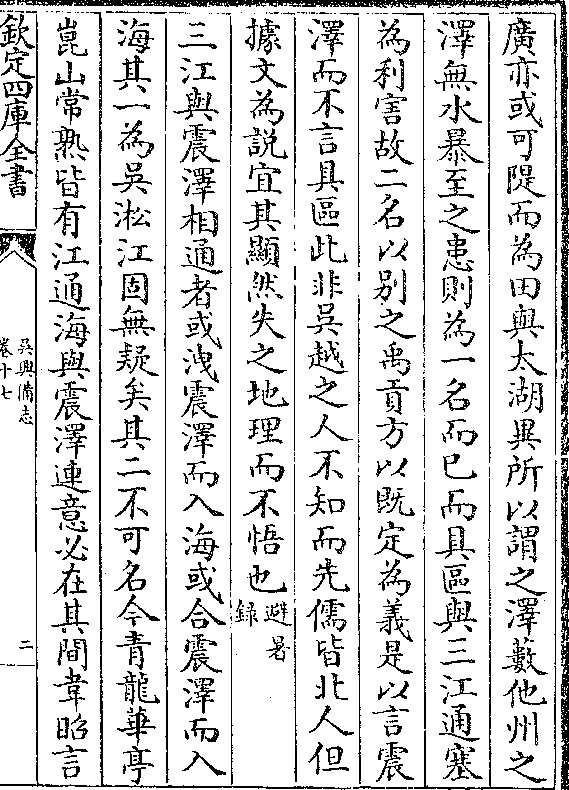 廣亦或可隄而為田與太湖異所以謂之澤藪他州之
澤無水暴至之患則為一名而已而具區與三江通塞
為利害故二名以别之禹貢方以既定為義是以言震
澤而不言具區此非吳越之人不知而先儒皆北人但
據文為說宜其顯然失之地理而不悟也避暑錄
三江與震澤相通者或洩震澤而入海或合震澤而入
海其一為吳淞江固無疑矣其二不可名今青龍華亭
崑山常熟皆有江通海與震澤連意必在其間韋昭言
欽定四庫全書
吳興備志
卷十七
二